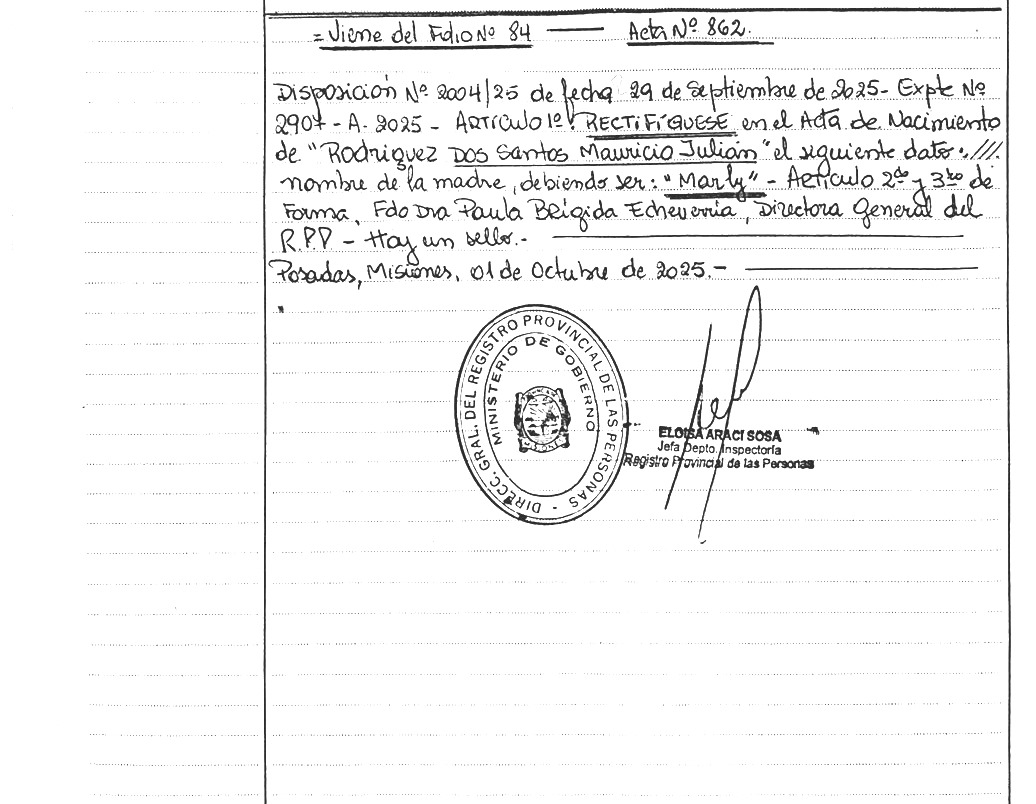 = Viene del Folio Nº 84 —— Acta Nº 862.
Disposición Nº 2004/25 de fecha 29 de Septiembre de 2025 - Expte Nº
2907 - A. 2025 - Artículo 1º: RECTIFÍQUESE en el Acta de Nacimiento
de "Rodriguez DOS Santos Mauricio Julián" el siguiente dato: ///.
nombre de la madre, debiendo ser: "Marly" - Artículo 2do y 3ro de
Forma, Fdo Dra Paula Brígida Echeverria, Directora General del
R.P.P - Hay un sello.-
Posadas, Misiones, 01 de Octubre de 2025.-
DIRECC. GRAL. DEL REGISTRO PROVINCIAL DE LAS PERSONAS -
MINISTERIO DE GOBIERNO
ELOISA ARACI SOSA
Jefa Depto. Inspectoría
Registro Provincial de las Personas